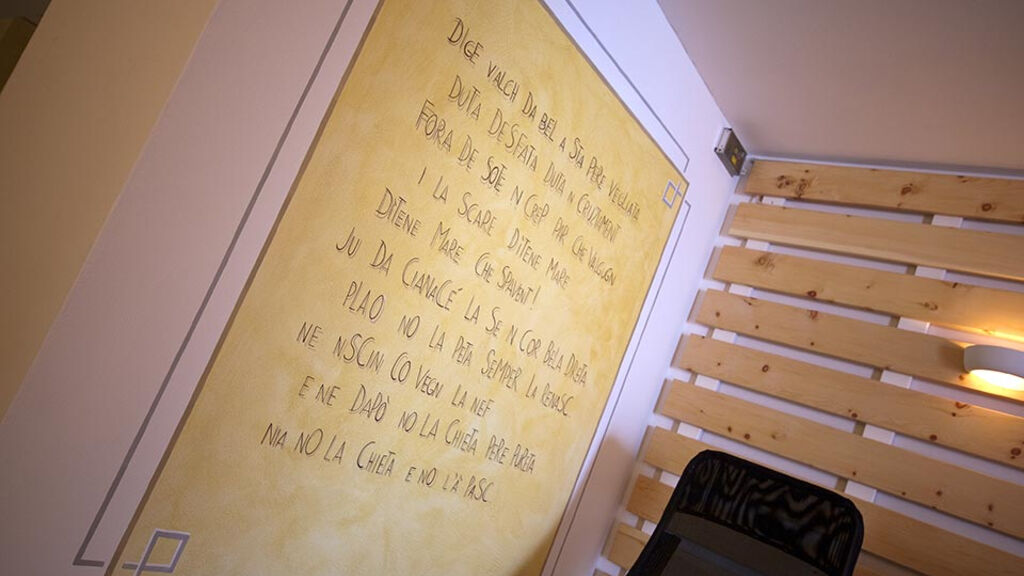 DIGE VALCH DA BEL A STA PERE VEGLIATA
DUTA DESFATA DUTA N CRUZIAMENT
FORA DE SOE N CREP PAR CHE VALUGN
I LA SCARE DITENE MARE
DITENE MARE CHE SPAVENT!
JU DA CIANACÉ LA SE N COR BELA DRETA
PLAO NO LA PETA SEMPER LA RENASC
NE NSCIN CO VEGN LA NEF
E NE DAPÒ NO LA CHIETA PERE PURETA
NIA NO LA CHIETA E NO LA PASC